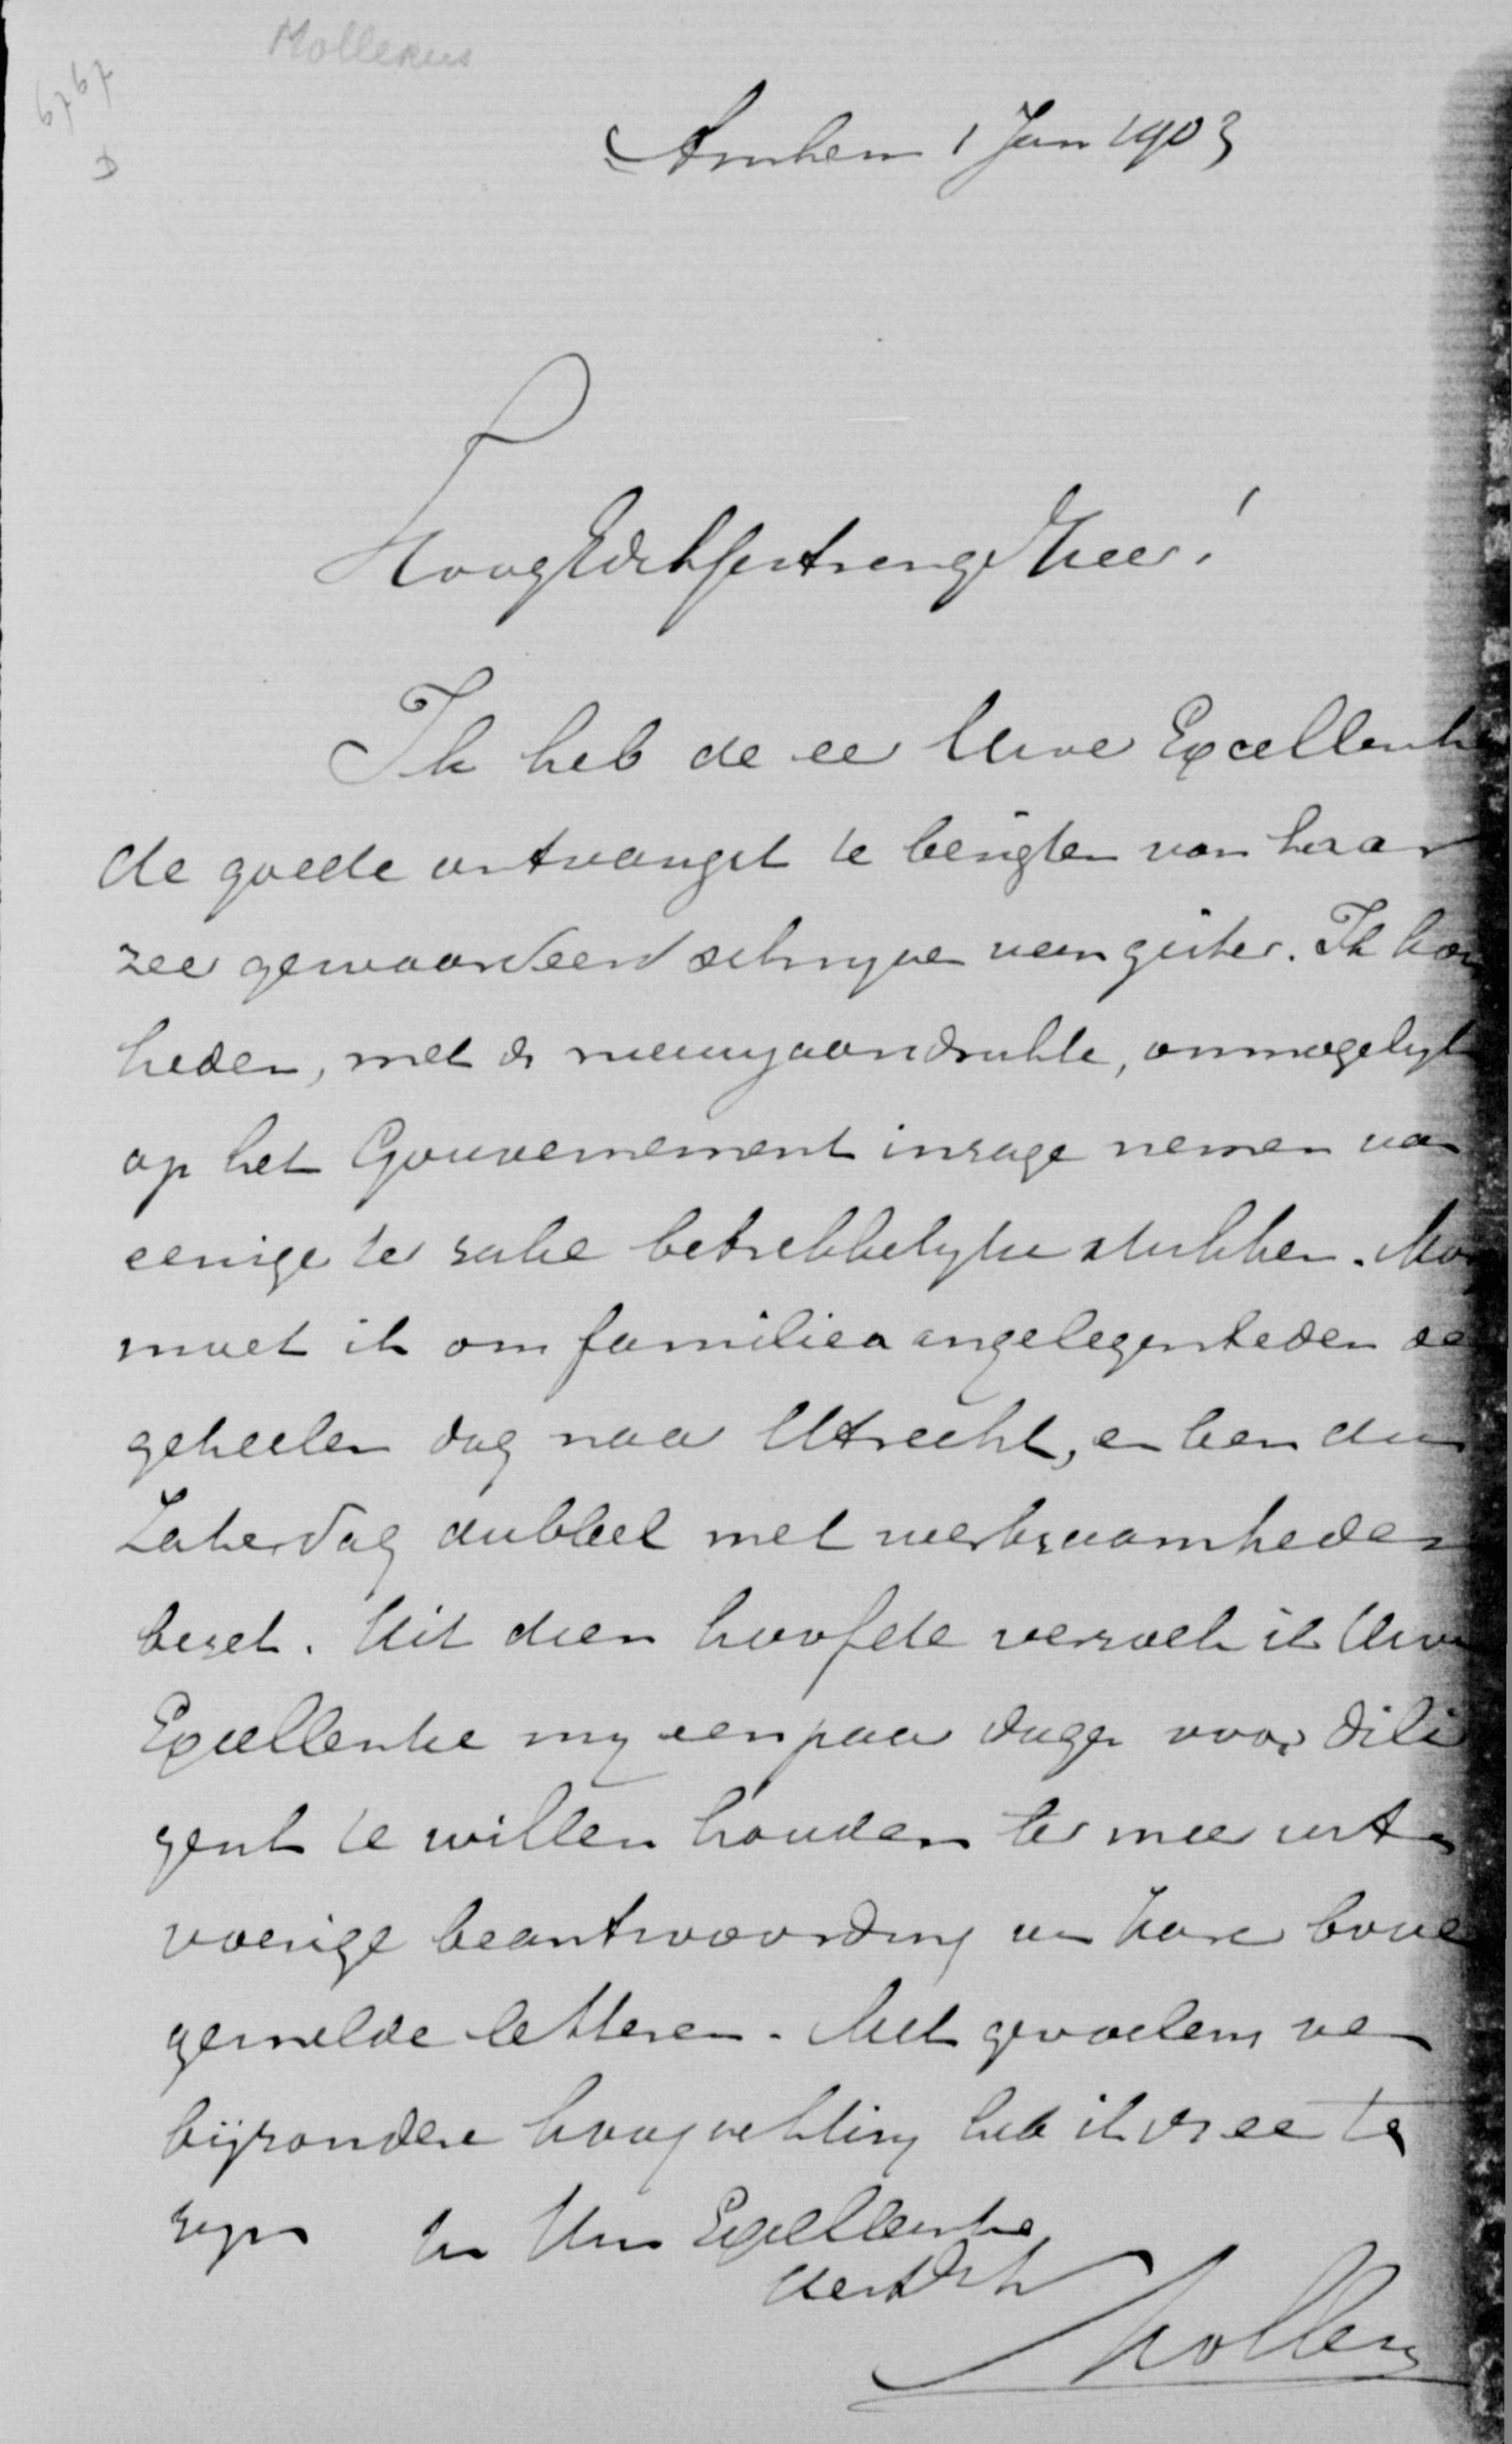 Mollerus
6767
D
Arnhem 1 Jan 1903
HoogEdelGestrenge Heer!
Ik heb de eer Uwe Excellentie
de goede ontvangst te berigten van haar
zeer gewaardeerd schryven van gister. Ik kon
heden, met de nieuwjaarsdrukte, onmogelyk
op het Gouvernement inzage nemen van
eenige ter zake betrekkelyke stukken. Mor
moet ik om familieaangelegenheden de
geheelen dag naar Utrecht, en ben dus
Zaterdag dubbel met werkzaamheden
bezet. Uit dien hoofde verzoek ik Uwe
Excellentie my een paar dagen voor dili
gent te willen houden ter meer uit
voerige beantwoording van Hare bove
gemelde letteren. Met gevoelens van
byzondere hoogachting heb ik de eer te
zyn Van Uwe Excellentie
Mollerus